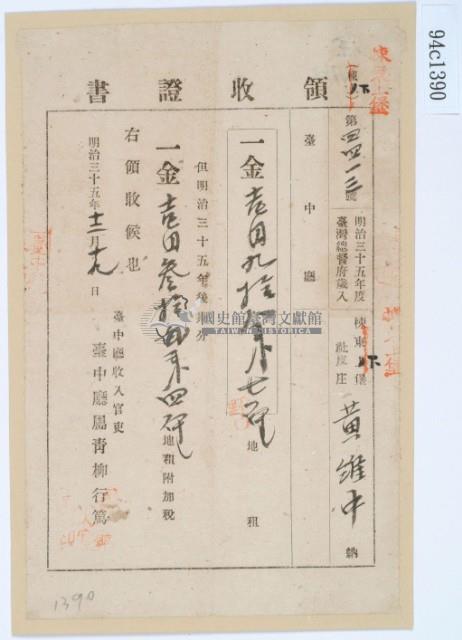 94c1390
領收證書
第四四一三號
明治三十五年度
臺灣總督府歲入
棟東下堡
庄
黃維中 納
臺中廳
一金壱円九拾
七厘
地租
但明治三十五年後期分
一金壱円参拾四
四厘
地租附加稅
右領收候也
明治三十五年十二月 九日
臺中廳收入官吏
臺中廳屬青柳行篤
國史館臺灣文獻館
TAIWAN HISTORICA
1390